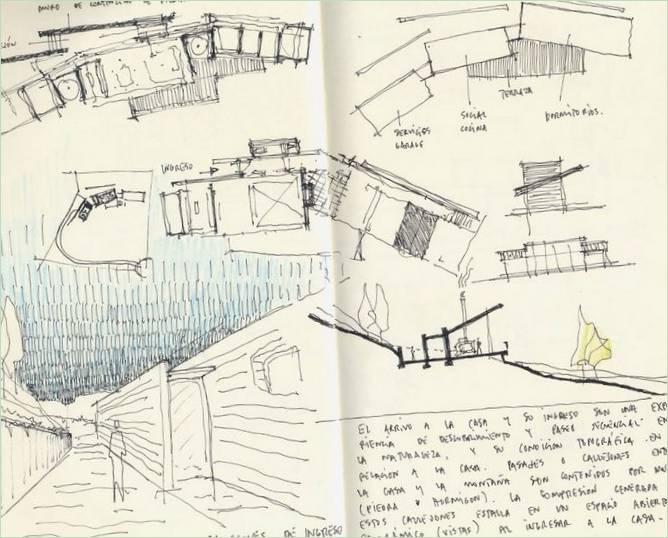 MURO DE CONTENCIÓN DE
INGRESO
TERRAZA
SOCIAL
COCINA
DORMITORIOS.
SERVICIOS
GARAGE
EL ARRIVO A LA CASA Y SU INGRESO SON UNA EXPE
RIENCIA DE DESCUBRIMIENTO Y PASEO SECUENCIAL EN
LA NATURALEZA, Y SU CONDICIÓN TOPOGRÁFICA EN
RELACION A LA CASA. PASAJES O CALLEJONES ENTR
LA CASA Y LA MONTAÑA SON CONTENIDOS POR MU
(PIEDRA Y HORMIGON). LA COMPRESIÓN GENERADA
ESTOS CALLEJONES ESTALLA EN UN ESPACIO ABIERTO
(VISTAS) AL INGRESAR A LA CASA.
DE INGRESO